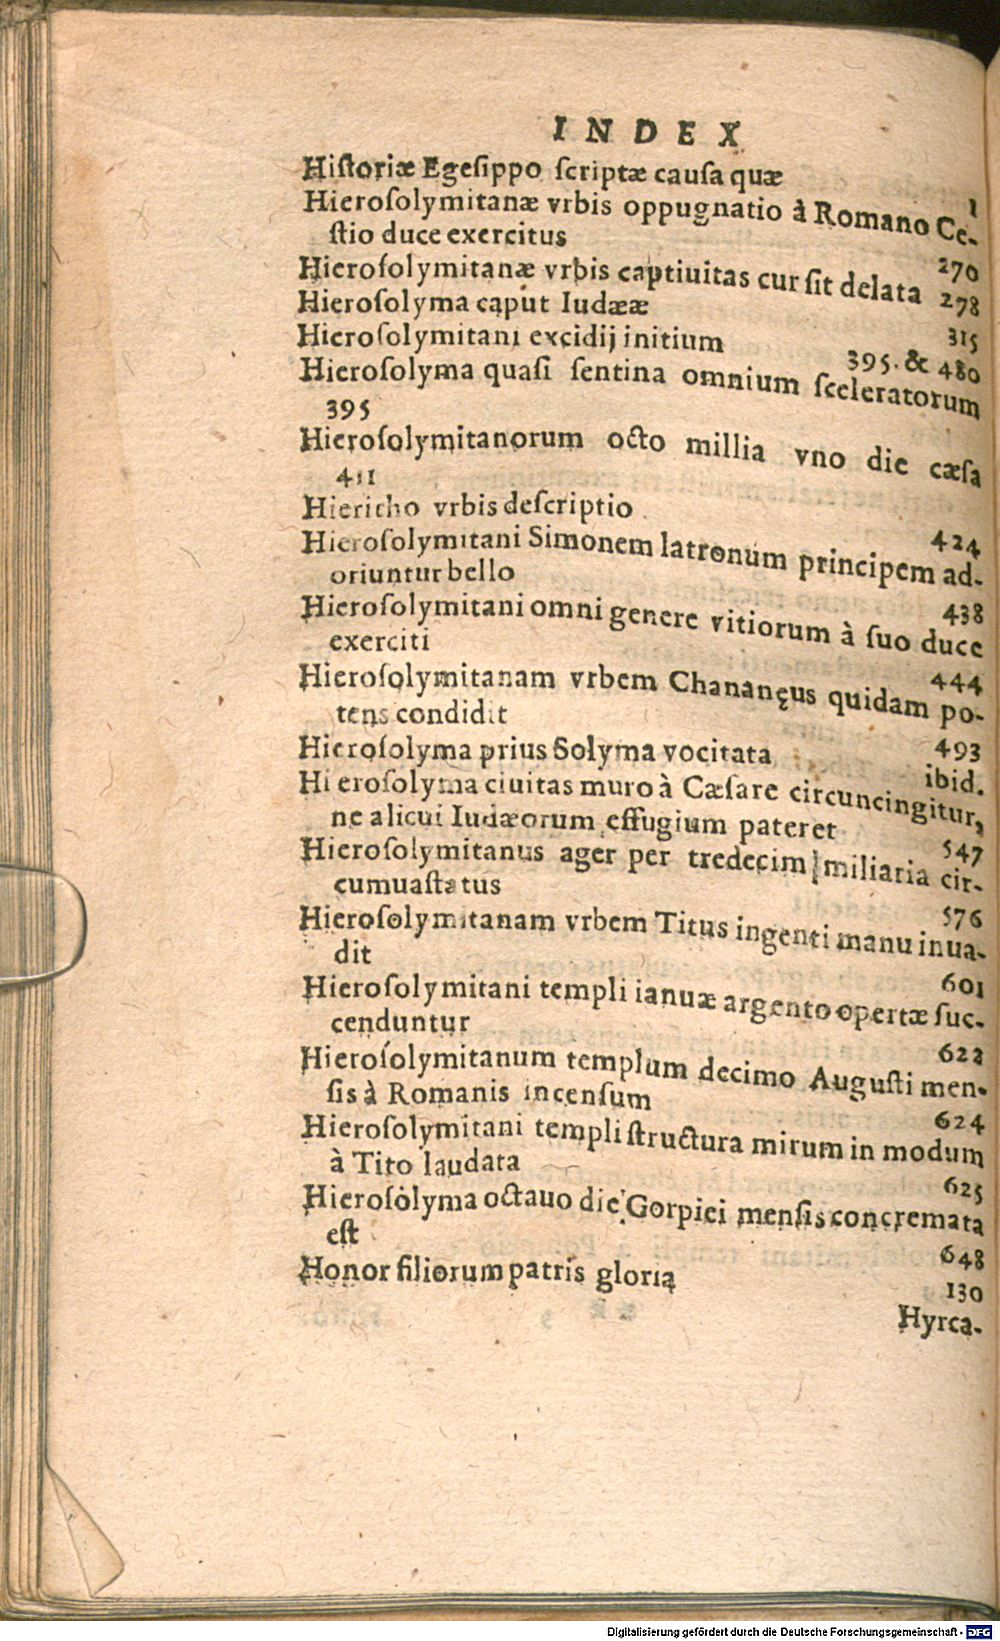 INDEX
Hiſtoriæ Egesippo ſcriptæ cauſa quæ 1
Hieroſolymitanæ vrbis oppugnatio à Romano Ce-
ſtio duce exercitus 270
Hieroſolymitanæ vrbis captiuitas cur ſit delata 278
Hieroſolyma caput Iudææ 315
Hieroſolymitani excidij initium 395. & 480
Hieroſolyma quaſi ſentina omnium ſceleratorum
395
Hieroſolymitanorum octo millia vno die cæſa
411
Hiericho vrbis deſcriptio 424
Hieroſolymitani Simonem latronum principem ad-
oriuntur bello 438
Hieroſolymitani omni genere vitiorum à ſuo duce
exerciti 444
Hieroſolymitanam vrbem Chananęus quidam po-
tens condidit 493
Hieroſolyma prius Solyma vocitata ibid.
Hieroſolyma ciuitas muro à Cæſare circuncingitur,
ne alicui Iudæorum effugium pateret 547
Hieroſolymitanus ager per tredecim miliaria cir-
cumuaſtatus 576
Hieroſolymitanam vrbem Titus ingenti manu inua-
dit 601
Hieroſolymitani templi ianuæ argento opertæ ſuc-
cenduntur 622
Hieroſolymitanum templum decimo Auguſti men-
ſis à Romanis incenſum 624
Hieroſolymitani templi ſtructura mirum in modum
à Tito laudata 625
Hieroſolyma octauo die Gorpiei menſis concremata
eſt 648
Honor filiorum patris gloria 130
Hyrca-
Digitalisierung gefördert durch die Deutsche Forschungsgemeinschaft - DFG